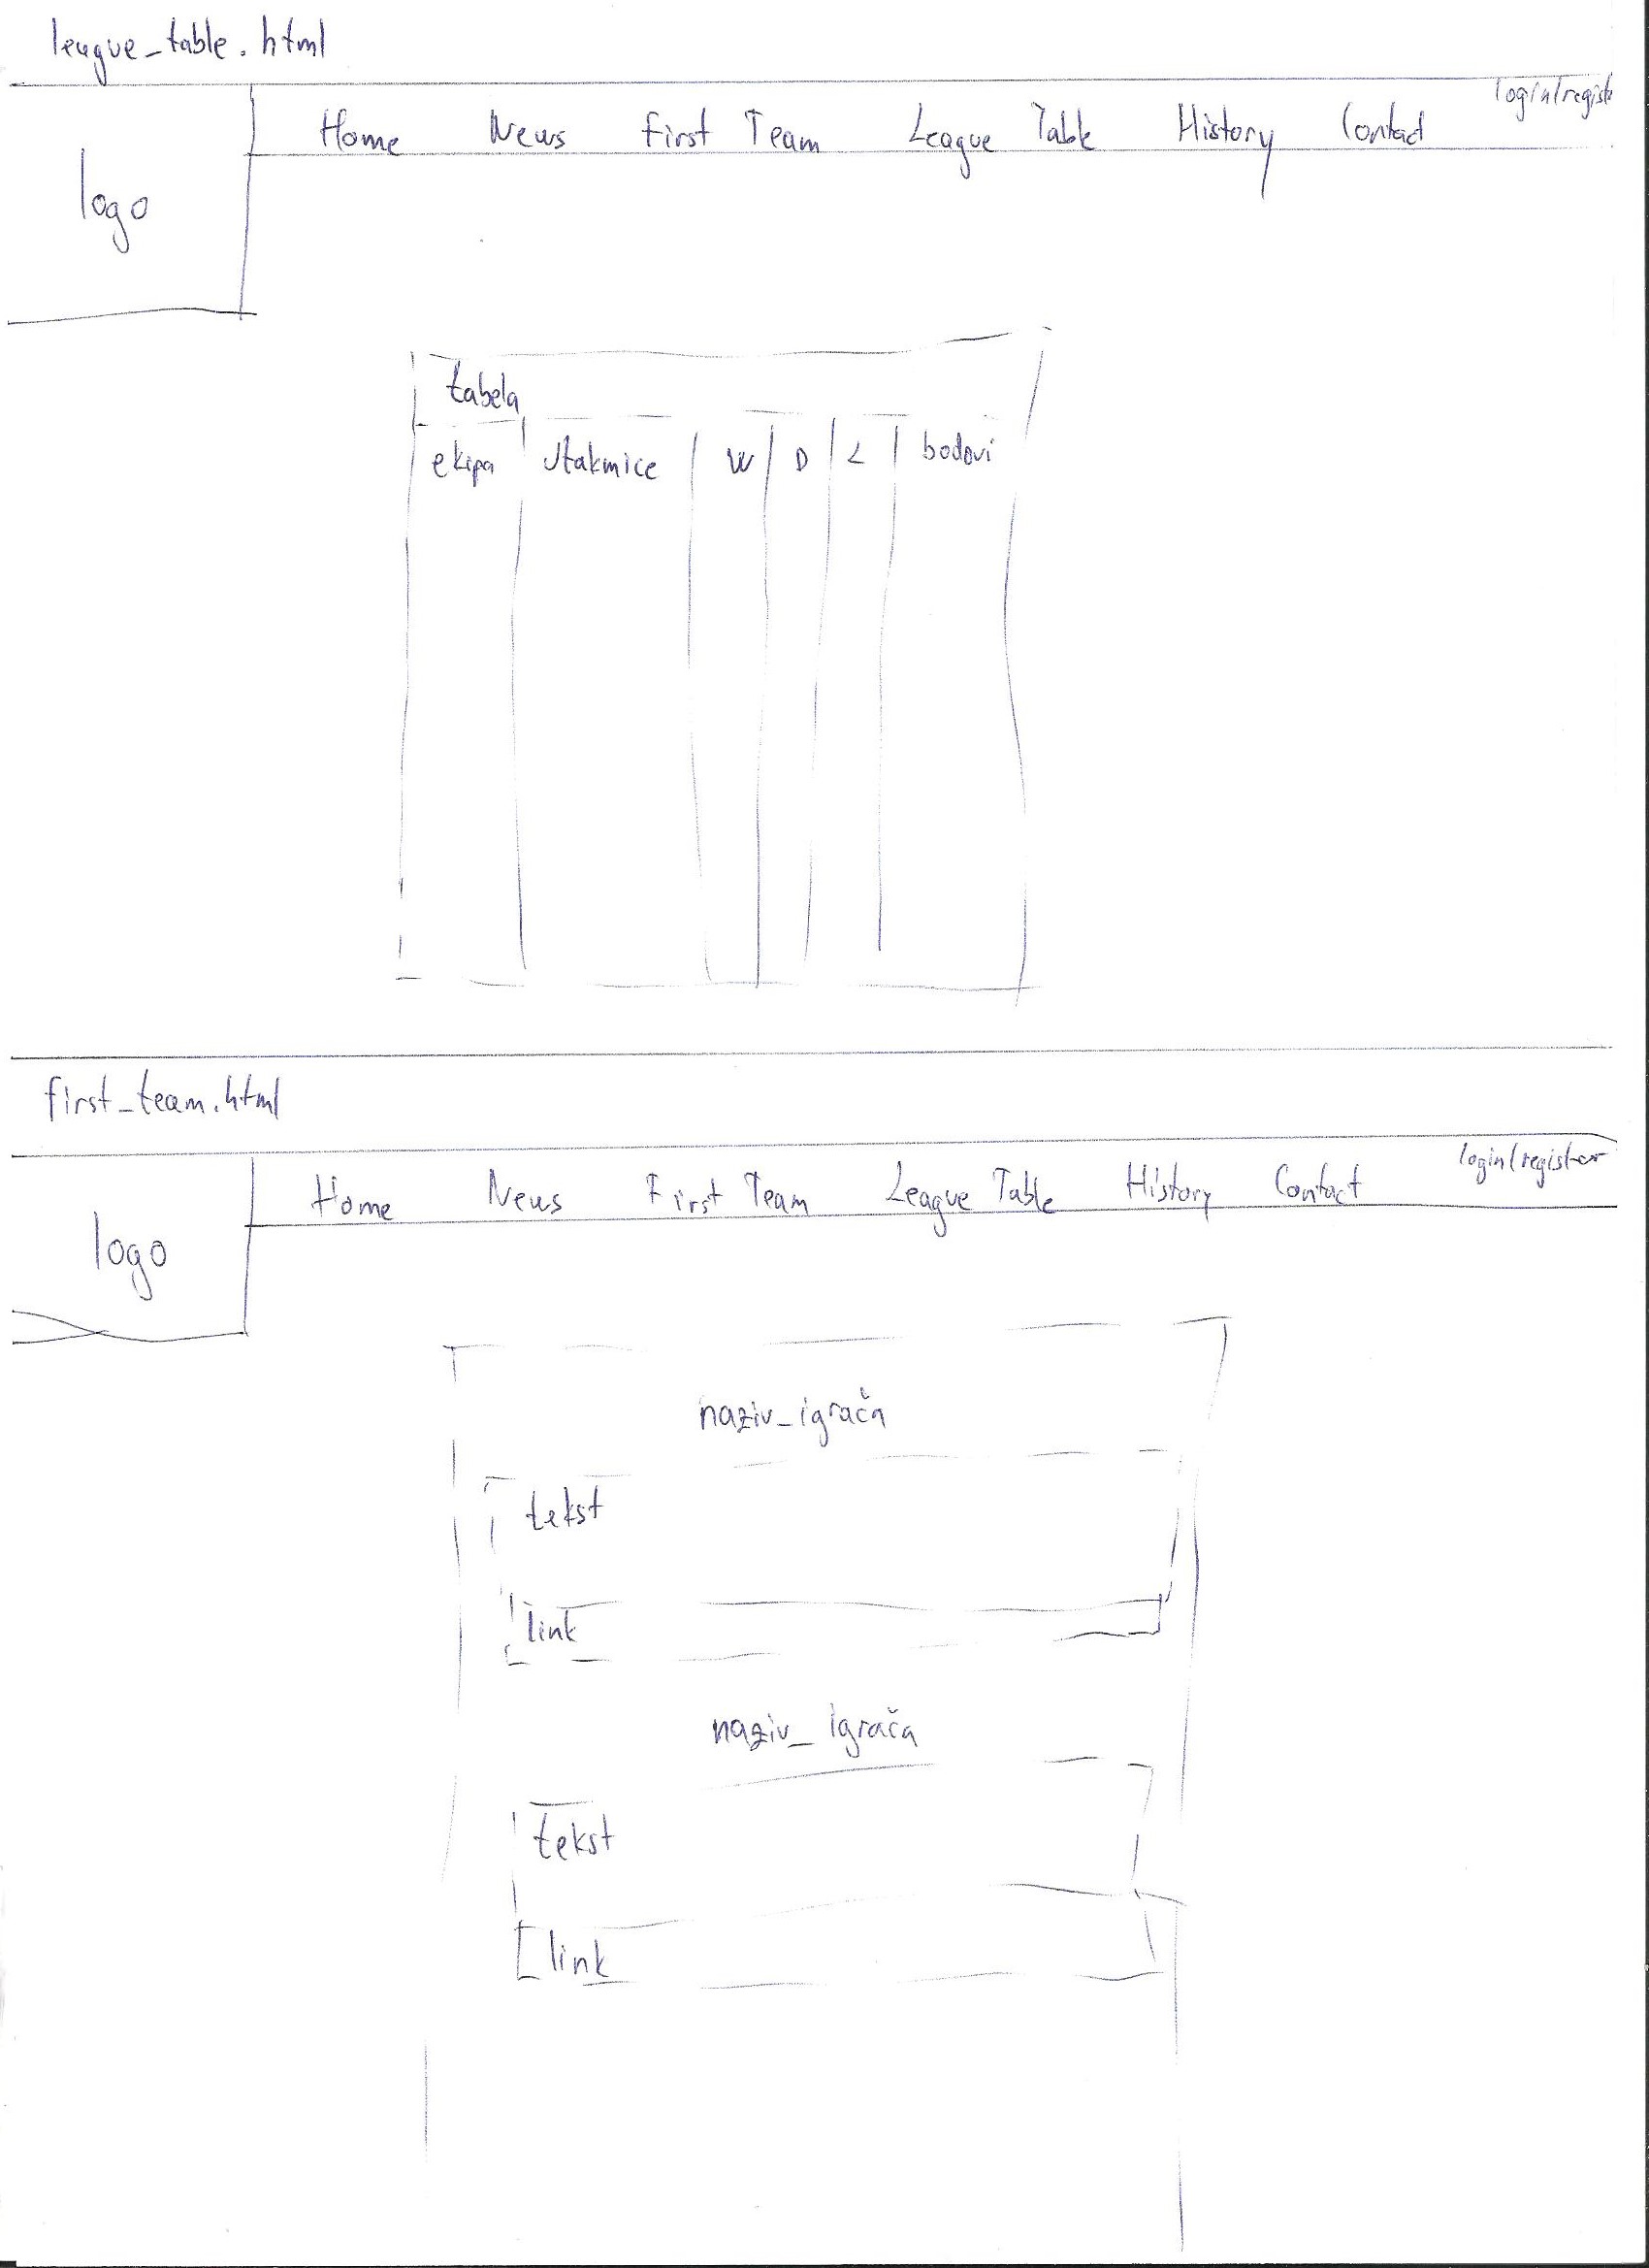 league_table.html
login/registe
Home News First Team League Table History Contact
logo
tabela
ekipa Utakmice W D L bodovi
first_team.html
login/register
Home News First Team League Table History Contact
logo
naziv_igrača
tekst
link
naziv_igrača
tekst
link